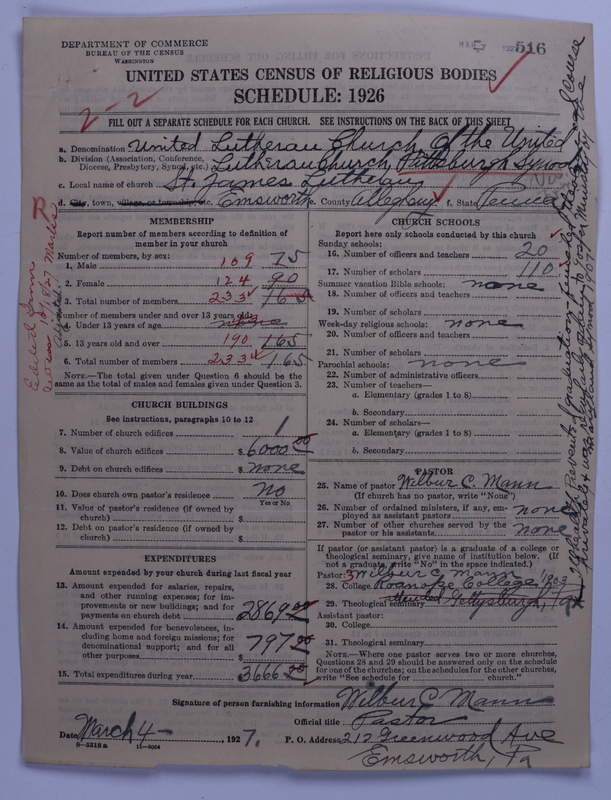 DEPARTMENT OF COMMERCE
BUREAU OF THE CENSUS
WASHINGTON
516
UNITED STATES CENSUS OF RELIGIOUS BODIES
SCHEDULE: 1926
2-2
FILL OUT A SEPARATE SCHEDULE FOR EACH CHURCH. SEE INSTRUCTIONS ON THE BACK OF THIS SHEET
a. Denomination United Lutheran Church of the United
b. Division (Association, Conference, Diocese, Presbytery, Synod, etc.) Lutheran Church, Pittsburgh Synod
c. Local name of church St. James Lutheran
d. City, town, village, or township, etc. Emsworth e. County Allegheny f. State Penna
MEMBERSHIP
Report number of members according to definition of
member in your church
Number of members, by sex:
1. Male 109 75
2. Female 124 90
3. Total number of members 233 165
Number of members under and over 13 years old:
4. Under 13 years of age 43 none
5. 13 years old and over 190 165
6. Total number of members 233 165
NOTE.—The total given under Question 6 should be the
same as the total of males and females given under Question 3.
CHURCH BUILDINGS
See instructions, paragraphs 10 to 12
7. Number of church edifices 1
8. Value of church edifices $ 6000.00
9. Debt on church edifices $ none
10. Does church own pastor's residence No
Yes or No
11. Value of pastor's residence (if owned by
church) $
12. Debt on pastor's residence (if owned by
church) $
EXPENDITURES
Amount expended by your church during last fiscal year
13. Amount expended for salaries, repairs,
and other running expenses; for im-
provements or new buildings; and for
payments on church debt $ 2869.00
14. Amount expended for benevolences, in-
cluding home and foreign missions; for
denominational support; and for all
other purposes $ 797.00
15. Total expenditures during year $ 3666.00
CHURCH SCHOOLS
Report here only schools conducted by this church
Sunday schools:
16. Number of officers and teachers 20
17. Number of scholars 110
Summer vacation Bible schools: none
18. Number of officers and teachers
19. Number of scholars
Week-day religious schools: none
20. Number of officers and teachers
21. Number of scholars
Parochial schools: none
22. Number of administrative officers
23. Number of teachers—
a. Elementary (grades 1 to 8)
b. Secondary
24. Number of scholars—
a. Elementary (grades 1 to 8)
b. Secondary
PASTOR
25. Name of pastor Wilbur C. Mann
(If church has no pastor, write "None")
26. Number of ordained ministers, if any, em-
ployed as assistant pastors none
27. Number of other churches served by the
pastor or his assistants none
If pastor (or assistant pastor) is a graduate of a college or
theological seminary, give name of institution below. (If
not a graduate, write "No" in the space indicated.)
Pastor: Wilbur C. Mann
28. College Roanoke College, 1903
29. Theological seminary Gettysburg, Pa
Assistant pastor:
30. College
31. Theological seminary
NOTE.—Where one pastor serves two or more churches,
Questions 28 and 29 should be answered only on the schedule
for one of the churches; on the schedules for the other churches,
write "See schedule for church."
Signature of person furnishing information Wilbur C. Mann
Official title Pastor
Date March 4- , 1927.
P. O. Address 212 Greenwood Ave
Emsworth, Pa
8-5518a 11-9064